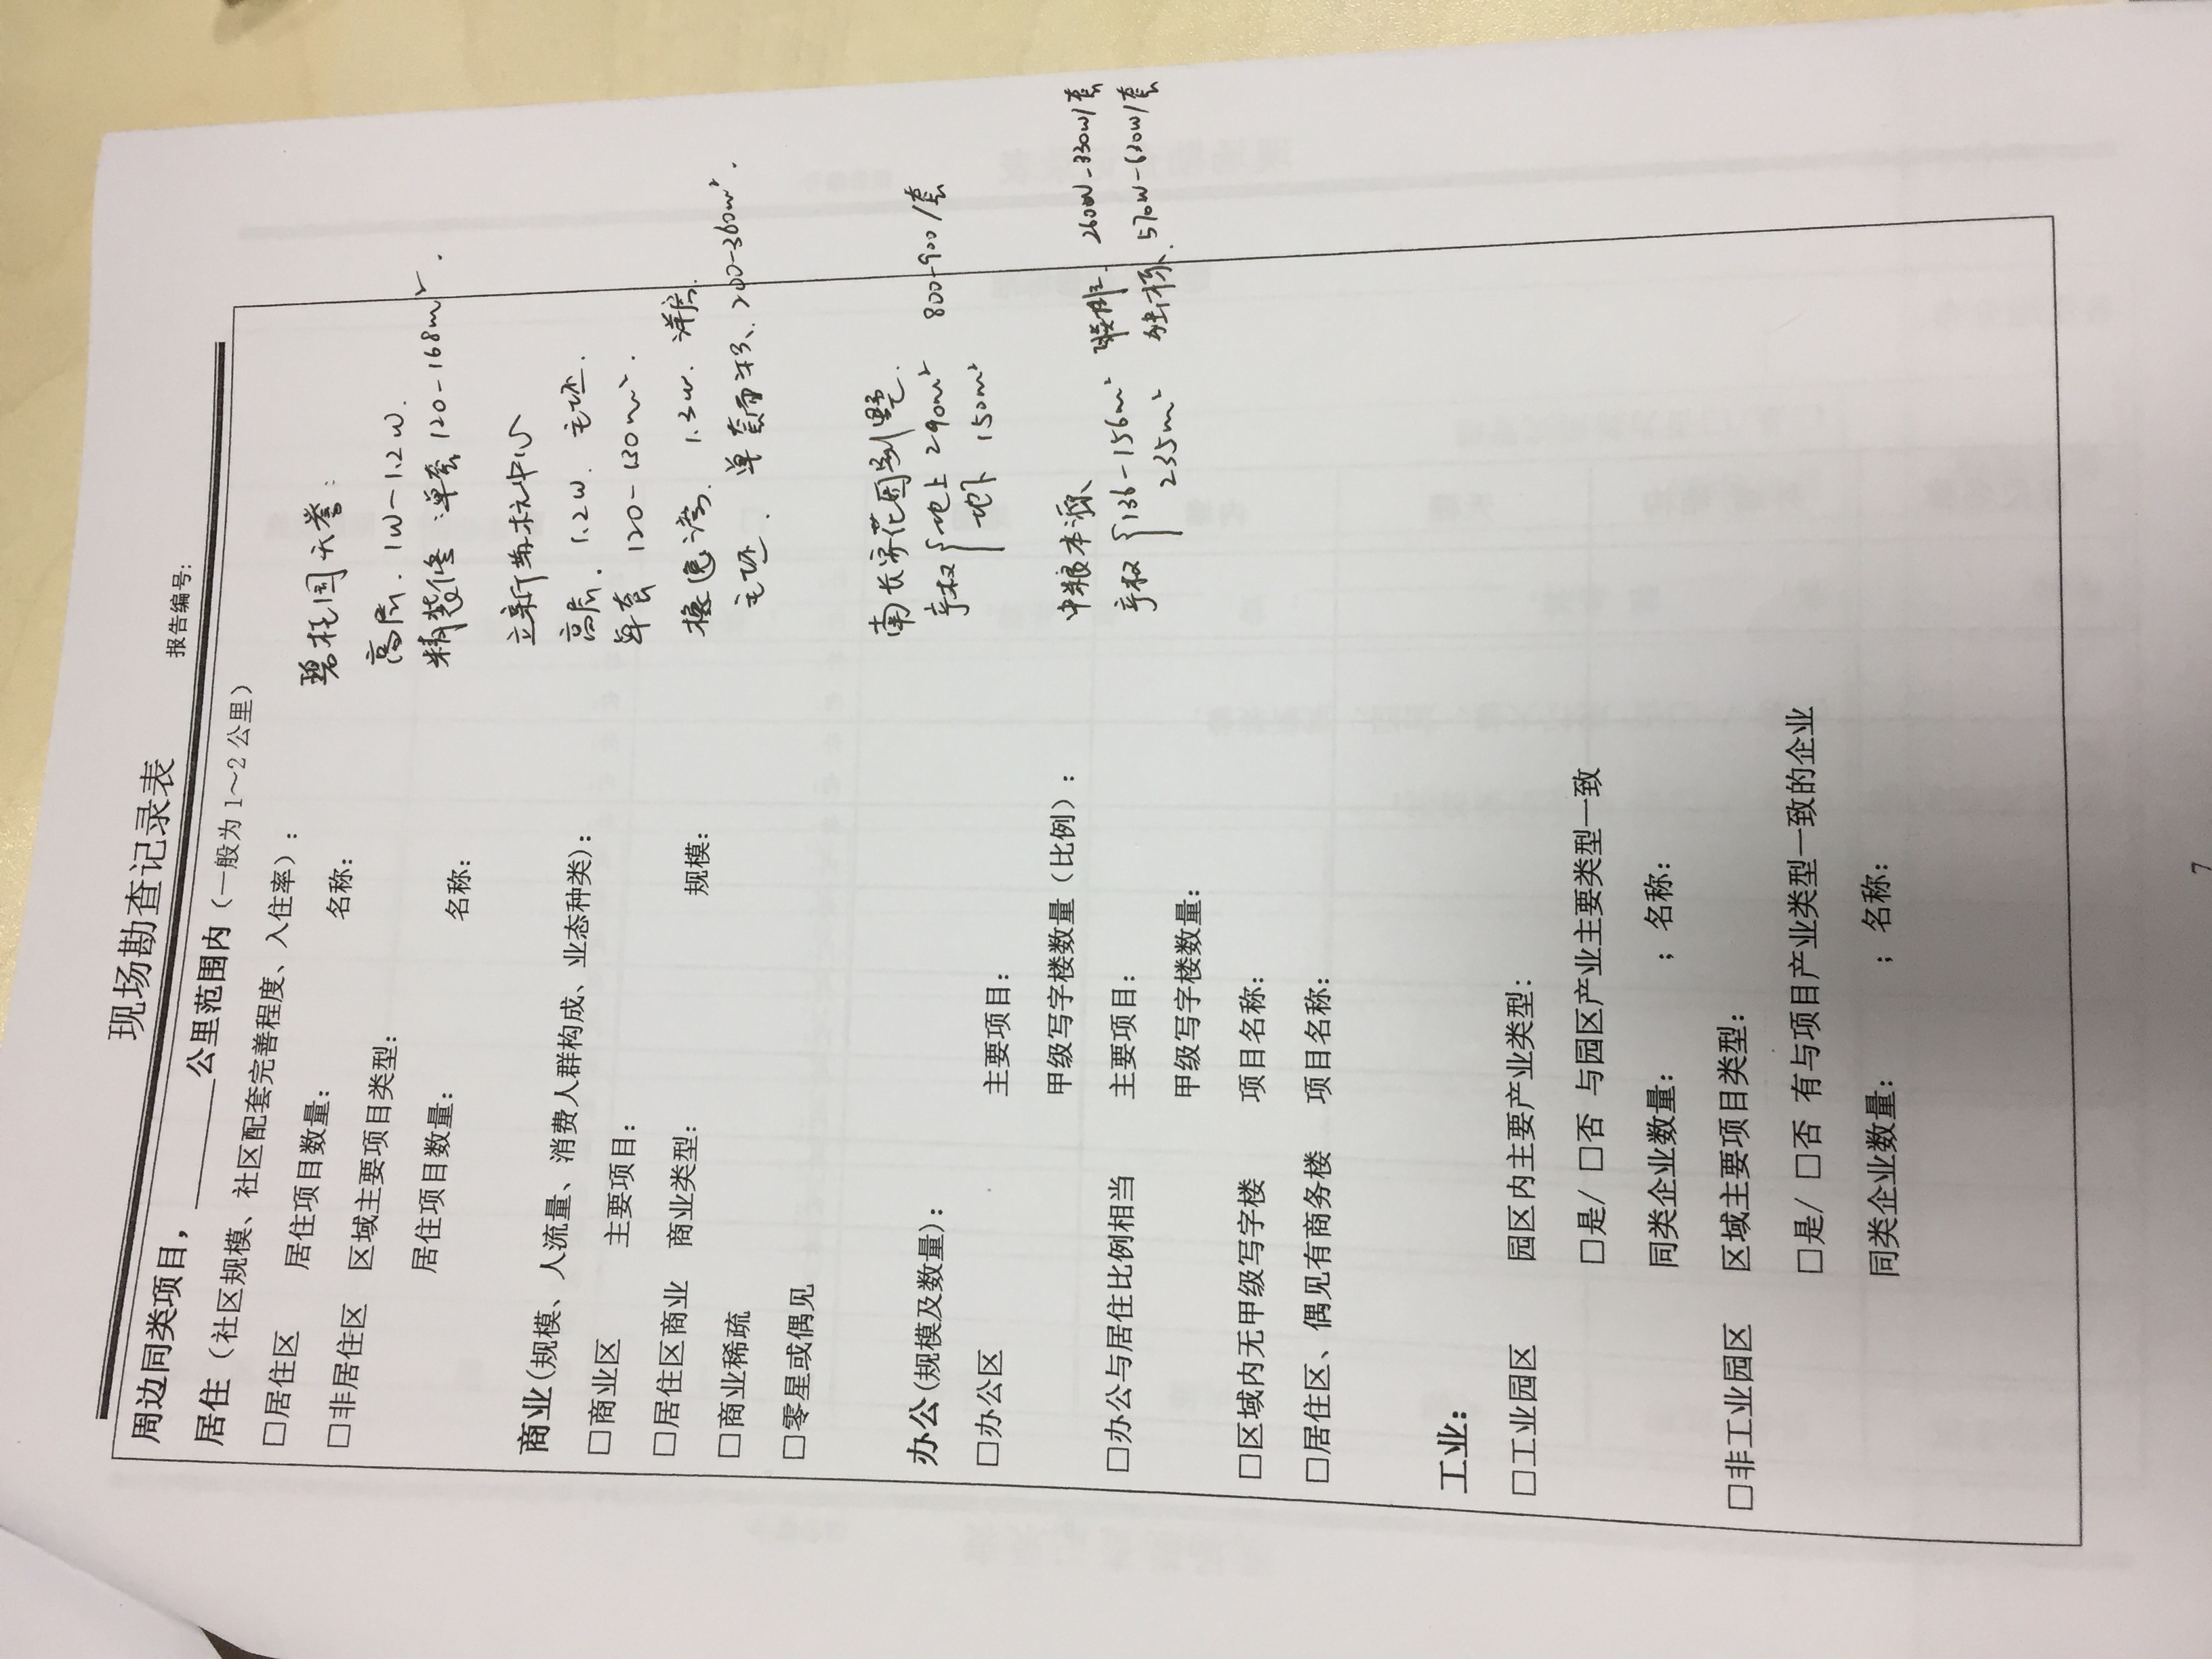 现场勘查记录表
报告编号:
周边同类项目，______公里范围内（一般为 1～2 公里）
居住（社区规模、社区配套完善程度、入住率）：
□居住区 居住项目数量： 名称：
□非居住区 区域主要项目类型：
居住项目数量： 名称：
碧桂园天誉:
高层. 1w-1.2w.
精装修 单套 120-168m².
商业(规模、人流量、消费人群构成、业态种类)：
□商业区 主要项目：
□居住区商业 商业类型： 规模：
□商业稀疏
□零星或偶见
高层. 1.2w. 毛坯.
单套 120-130m².
1.3w. 洋房.
毛坯. 单套面积、200-360m².
办公(规模及数量)：
□办公区 主要项目：
甲级写字楼数量（比例）：
□办公与居住比例相当 主要项目：
甲级写字楼数量：
□区域内无甲级写字楼 项目名称：
□居住区、偶见有商务楼 项目名称：
花园别墅.
产权 { 地上 290m² 800-900/套
地下 150m²
中粮本源、
产权 { 136-156m² 联排. 260w-330w/套
235m² 独栋. 570w-630w/套
工业：
□工业园区 园区内主要产业类型：
□是/ □否 与园区产业主要类型一致
同类企业数量： ；名称：
□非工业园区 区域主要项目类型：
□是/ □否 有与项目产业类型一致的企业
同类企业数量： ；名称：
7